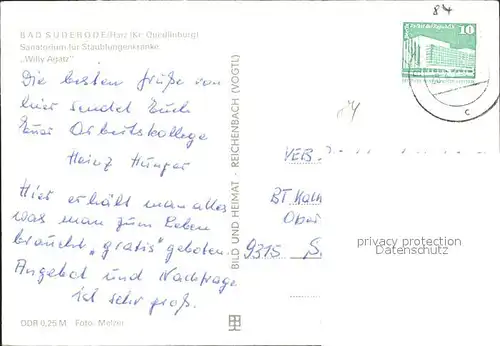 84
BAD SUDERODE/Harz (Kr. Quedlinburg)
Sanatorium für Staublungenkranke
„Willy Agatz"
10
Die besten Grüße von
hier sendet Euch
Euer Arbeitskollege
Heinz Hunger
Hier erhält man alles
was man zum Leben
braucht „gratis" geboten.
Angebot und Nachfrage
ist sehr groß.
DDR 0,25 M Foto: Melzer
BILD UND HEIMAT · REICHENBACH (VOGTL)
c
VEB
BT Kalk
Ober
9315
privacy protection
Datenschutz